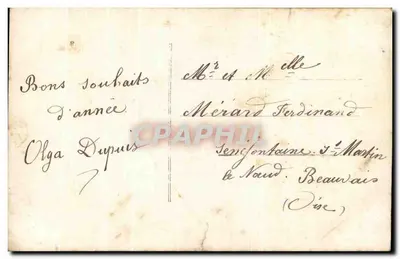 Bons souhaits
d'année
Olga Dupuis
Mr et Melle
Mérard Ferdinand
Senéfontaine St Martin
le Nœud. Beauvais
(Oise)
CPAPHIL